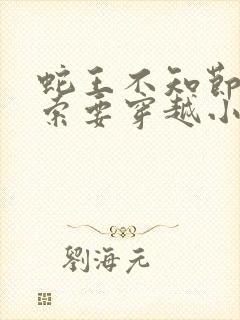 蛇王不知節
索要穿越小
劉海元